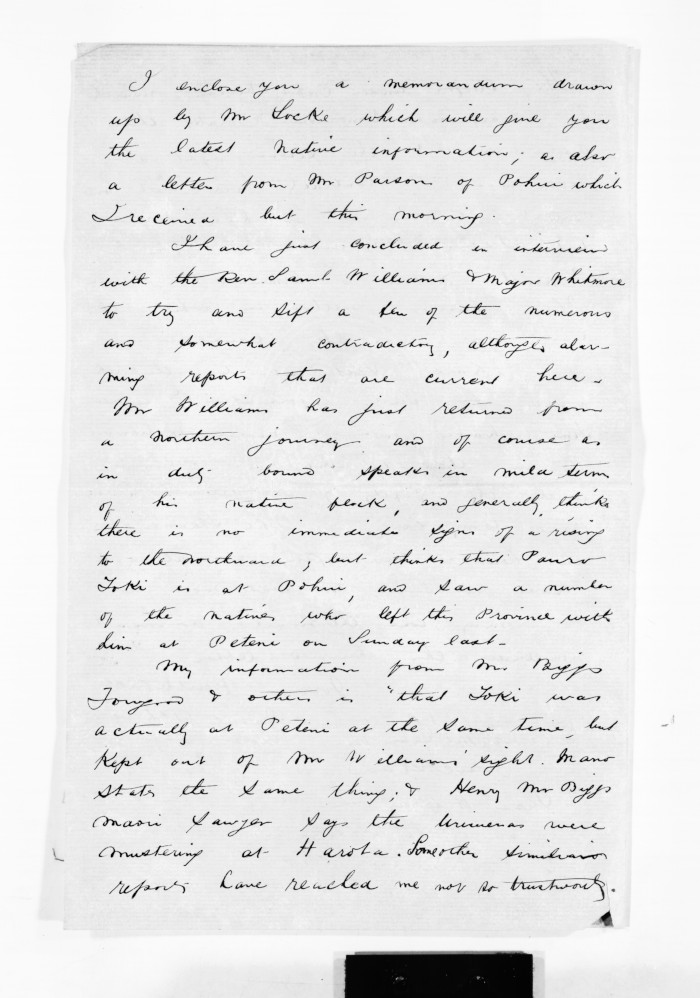 I enclose you a memorandum drawn
up by Mr Locke which will give you
the latest Native information; as also
a letter from Mr Parsons of Pohui which
I received but this morning.
I have just concluded an interview
with the Rev. Saml Williams & Major Whitmore
to try and sift a few of the numerous
and somewhat contradictory, although alar-
ming reports that are current here.
Mr Williams has just returned from
a Northern journey and of course as
in duty bound speaks in mild terms
of his native flock, and generally thinks
there is no immediate signs of a rising
to the Northward; but thinks that Pauro
Toki is at Pohui, and saw a number
of the natives who left this Province with
him at Petane on Sunday last-
My information from Mr Biggs
Towgood & others is "that Toki was
actually at Peteni at the same time, but
kept out of Mr Williams' sight. Mano
states the same thing; & Henry Mr Biggs
maori Sawyer says the Uriweras were
mustering at Harota. Some other similiar
reports have reached me not so trustworthy.